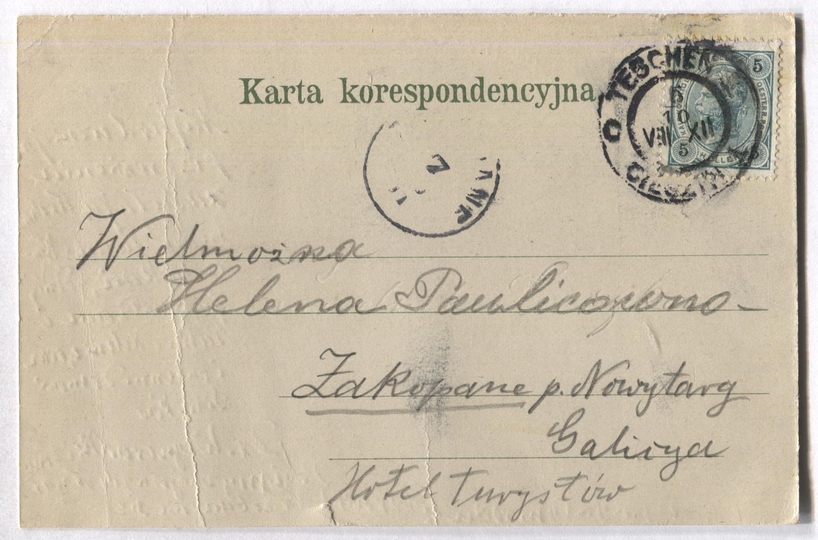 Karta korespondencyjna
5
TESCHEN
10
VIII XII
5
CIESZYN
Wielmożna
Helena
Zakopane p. Nowytarg
Galicya
Hotel turystów